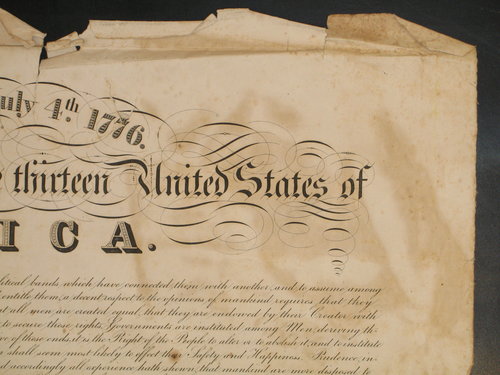 July 4th. 1776.
thirteen United States of
ICA.
bands which have connected them with another, and to assume among
entitle them, a decent respect to the opinions of mankind requires, that they
all men are created equal, that they are endowed by their Creator with
to secure these rights, Governments are instituted among Men, deriving th
of these ends, it is the Right of the People to alter or to abolish it, and to institute
shall seem most likely to effect their Safety and Happiness. Prudence, in-
accordingly all experience hath shewn, that mankind are more disposed to